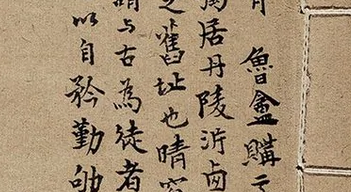 魯盦購
居丹陵沂
之舊址也晴窗
与古為徒者
以自矜勤